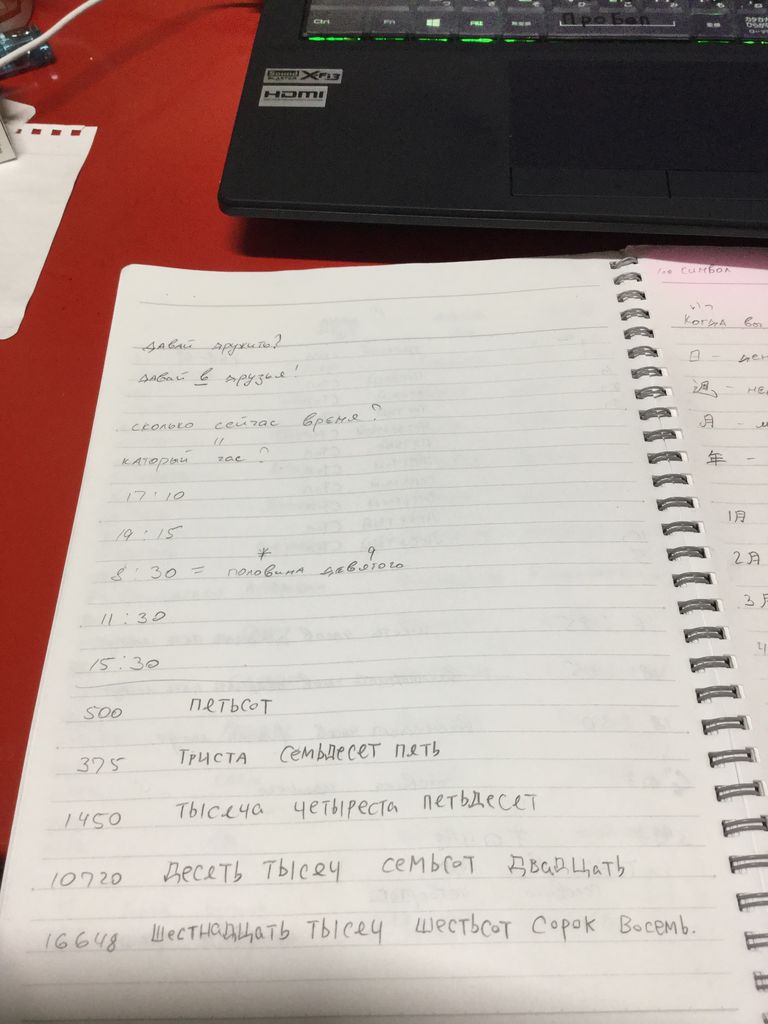 Ctrl Fn PRE Пробел
Sound BLASTER X-Fi3
HDMI
давай дружить?
давай в друзья!
сколько сейчас время?
каторый час?
17:10
19:15
* 9
8:30 = половина девятого
11:30
15:30
500 петьсот
375 триста семьдесет пять
1450 тысеча четыреста петьдесет
10720 Десеть тысеч семьсот двадцать
16648 шестнадцать тысеч шестьсот сорок восемь.
символ
Когда вы
日 -
週 -
月 -
年 -
1月
2月
3月